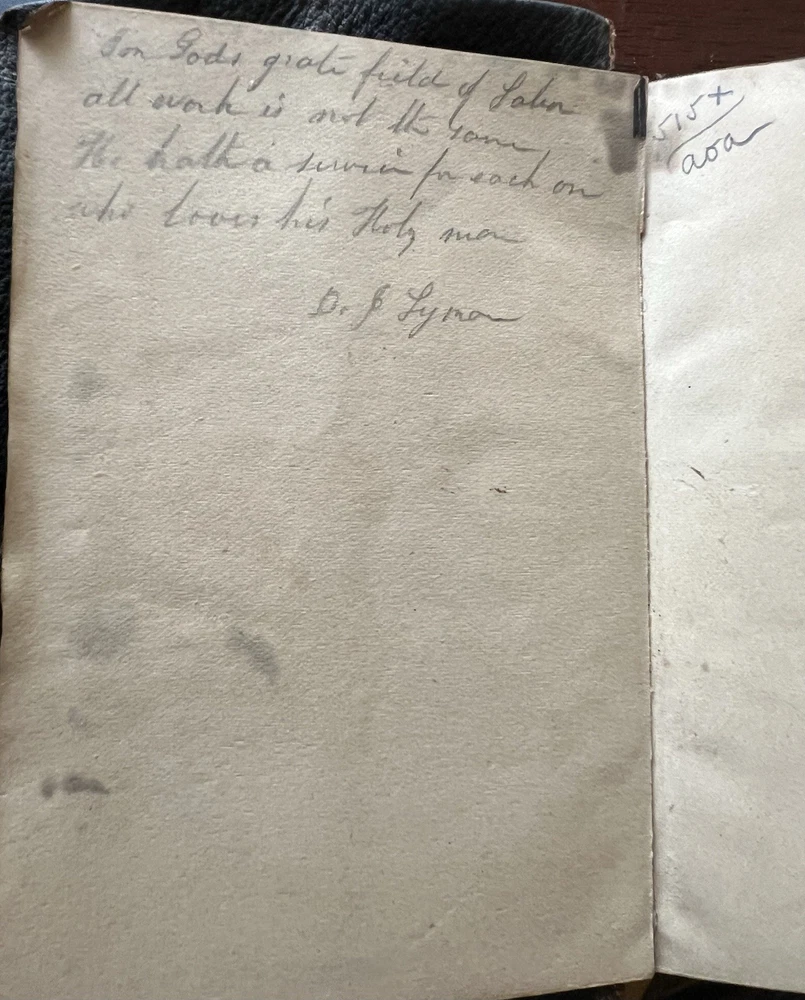 Gods grate field of Labor
all work is not the same
He hath a service for each one
who loves his Holy name
D. J Lyman
515+
aoa